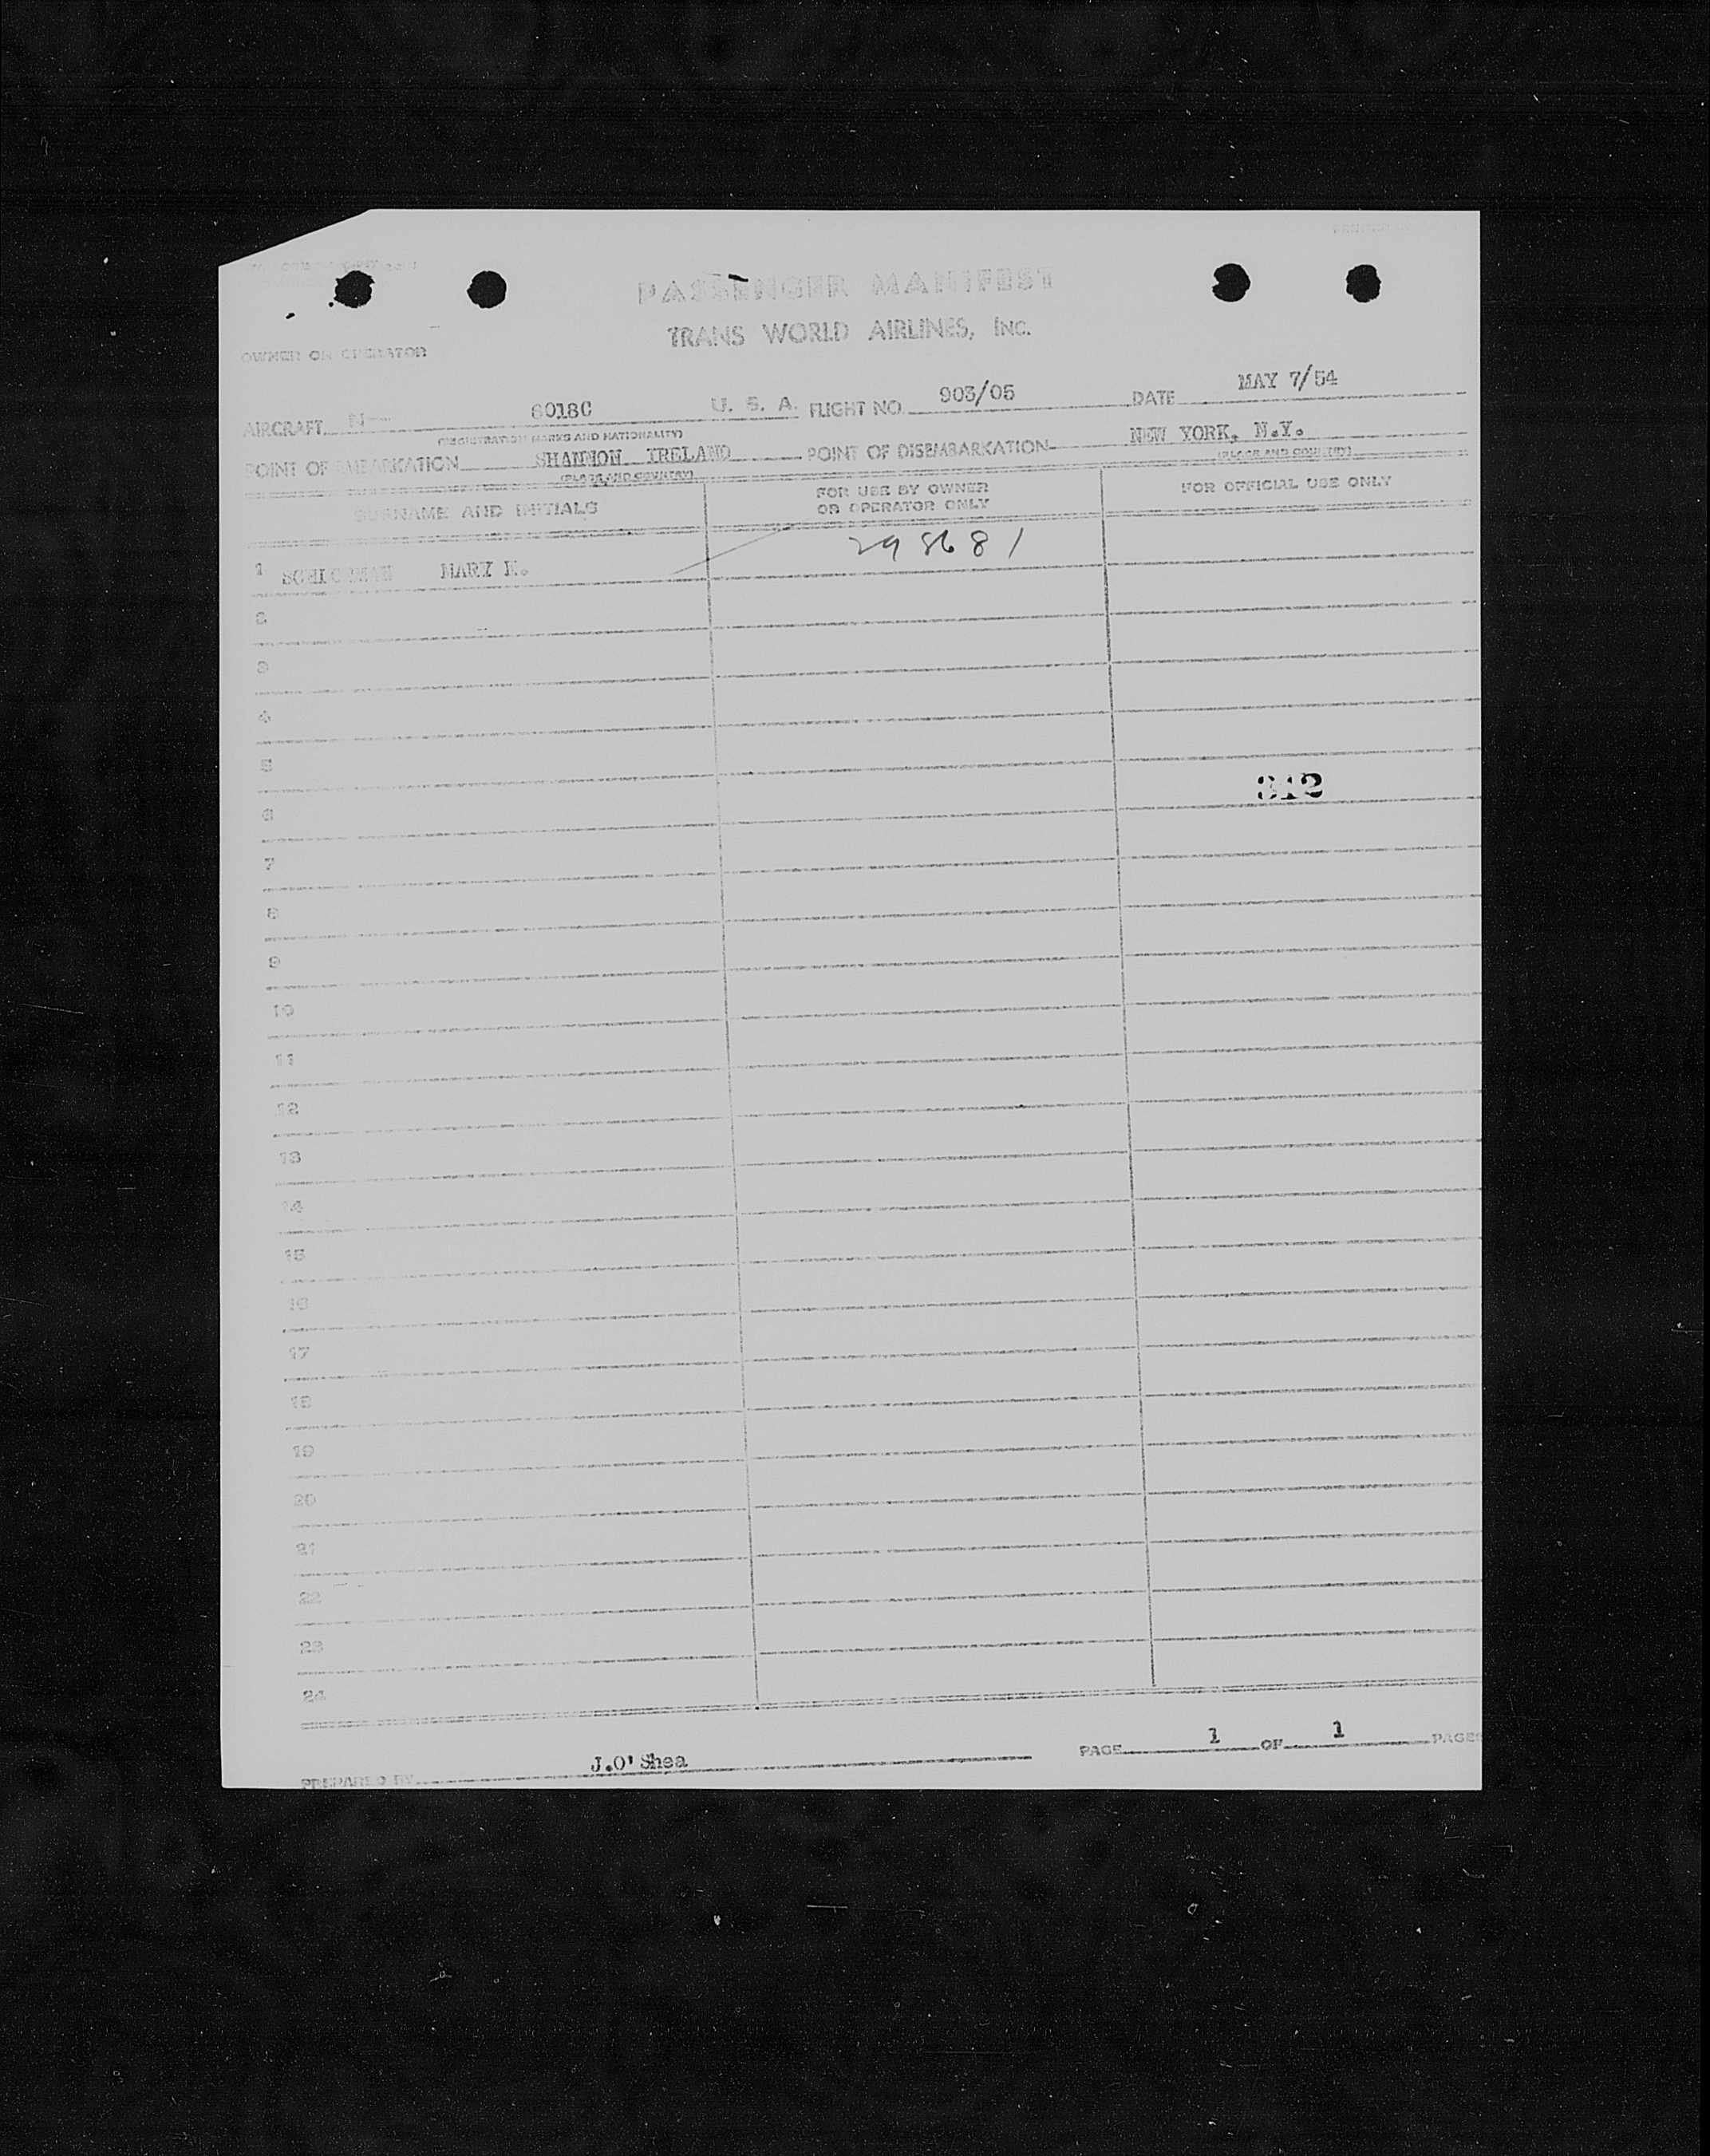 PASSENGER MANIFEST
TRANS WORLD AIRLINES, INC.
OWNER OR OPERATOR
AIRCRAFT N— 6018C U. S. A. FLIGHT NO. 903/05 DATE MAY 7/54
(REGISTRATION MARKS AND NATIONALITY)
POINT OF EMBARKATION SHANNON IRELAND POINT OF DISEMBARKATION NEW YORK, N.Y.
(PLACE AND COUNTRY) (PLACE AND COUNTRY)
SURNAME AND INITIALS FOR USE BY OWNER OR OPERATOR ONLY FOR OFFICIAL USE ONLY
1 MARY 298681
2
3
4
5
312
6
7
8
9
10
11
12
13
14
15
16
17
18
19
20
21
22
23
24
PREPARED BY J.O'Shea PAGE 1 OF 1 PAGES